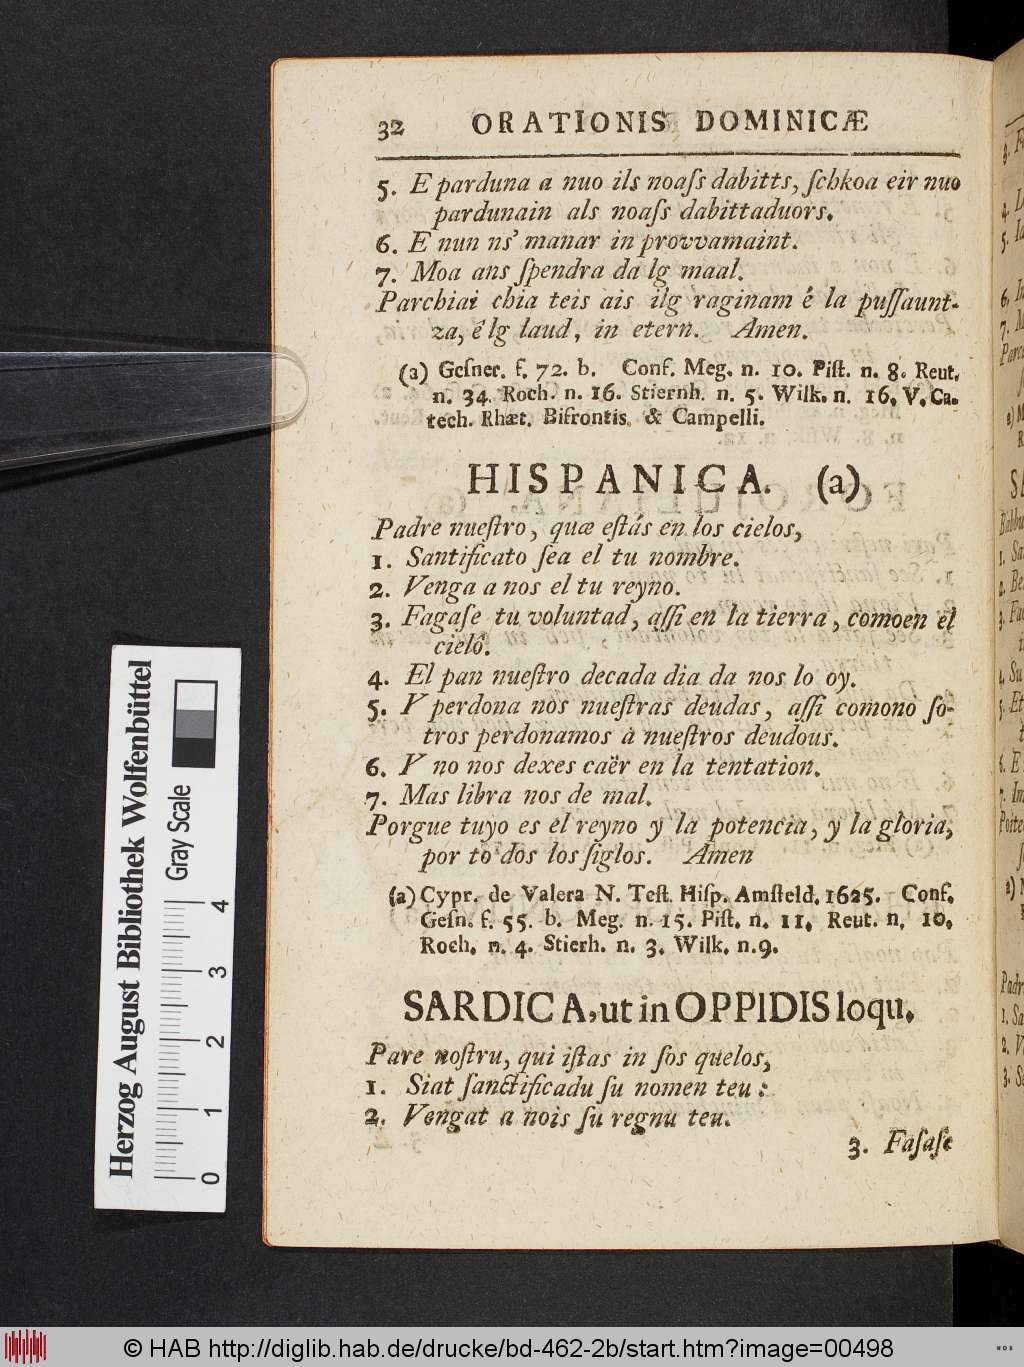 32 ORATIONIS DOMINICÆ
5. E parduna a nuo ils noaſs dabitts, ſchkoa eir nuo
pardunain als noaſs dabittaduors.
6. E nun ns' manar in provvamaint.
7. Moa ans ſpendra da lg maal.
Parchiai chia teis ais ilg raginam é la puſſaunt-
za, é lg laud, in etern. Amen.
(a) Geſner. f. 72. b. Conf. Meg. n. 10. Piſt. n. 8. Reut.
n. 34. Roch. n. 16. Stiernh. n. 5. Wilk. n. 16. V. Ca-
tech. Rhæt. Bifrontis. & Campelli.
HISPANICA. (a)
Padre nueſtro, quæ eſtás en los cielos,
1. Santificato ſea el tu nombre.
2. Venga a nos el tu reyno.
3. Fagaſe tu voluntad, aſſi en la tierra, comoen el
cieló.
4. El pan nueſtro decada dia da nos lo oy.
5. Y perdona nos nueſtras deudas, aſſi comono ſo-
tros perdonamos à nueſtros deudous.
6. Y no nos dexes caër en la tentation.
7. Mas libra nos de mal.
Porgue tuyo es el reyno y la potencia, y la gloria,
por to dos los ſiglos. Amen
(a) Cypr. de Valera N. Teſt. Hiſp. Amſteld. 1625. Conf.
Geſn. f. 55. b. Meg. n. 15. Piſt. n. 11. Reut. n. 10.
Roch. n. 4. Stierh. n. 3. Wilk. n. 9.
SARDICA, ut in OPPIDIS loqu.
Pare noſtru, qui iſtas in ſos quelos,
1. Siat ſanctificadu ſu nomen teu :
2. Vengat a nois ſu regnu teu.
3. Faſaſe
Herzog August Bibliothek Wolfenbüttel
Gray Scale
0 1 2 3 4
© HAB http://diglib.hab.de/drucke/bd-462-2b/start.htm?image=00498